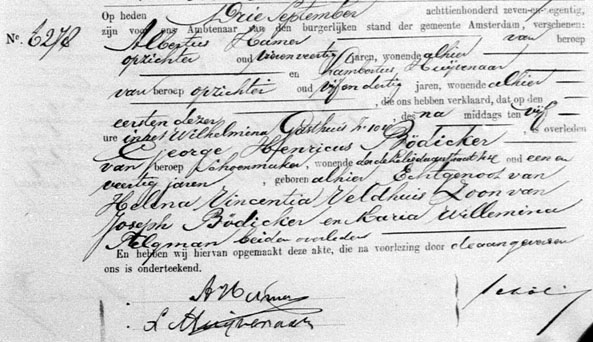 Op heden Drie September achttienhonderd zeven-en-negentig,
zijn voor ons Ambtenaar van den burgerlijken stand der gemeente Amsterdam, verschenen:
No. 6278 Albertus Hamer van beroep
opzichter oud vierenveertig jaren, wonende alhier
en Lambertus Huijvenaar
van beroep opzichter oud vijf en dertig jaren, wonende alhier
, die ons hebben verklaard, dat op den
eersten dezer, des na middags ten vijf
ure in het Wilhelmina Gasthuis overleden
George Henricus Bödicker
van beroep Schoenmaker, wonende oud een en
veertig jaren, geboren alhier Echtgenoot van
Helena Vincentia Veldhuis Zoon van
Joseph Bödicker en Maria Willemina
beiden overleden
En hebben wij hiervan opgemaakt deze akte, die na voorlezing door de aangevers en
ons is onderteekend.
A Hamer
L Huijvenaar